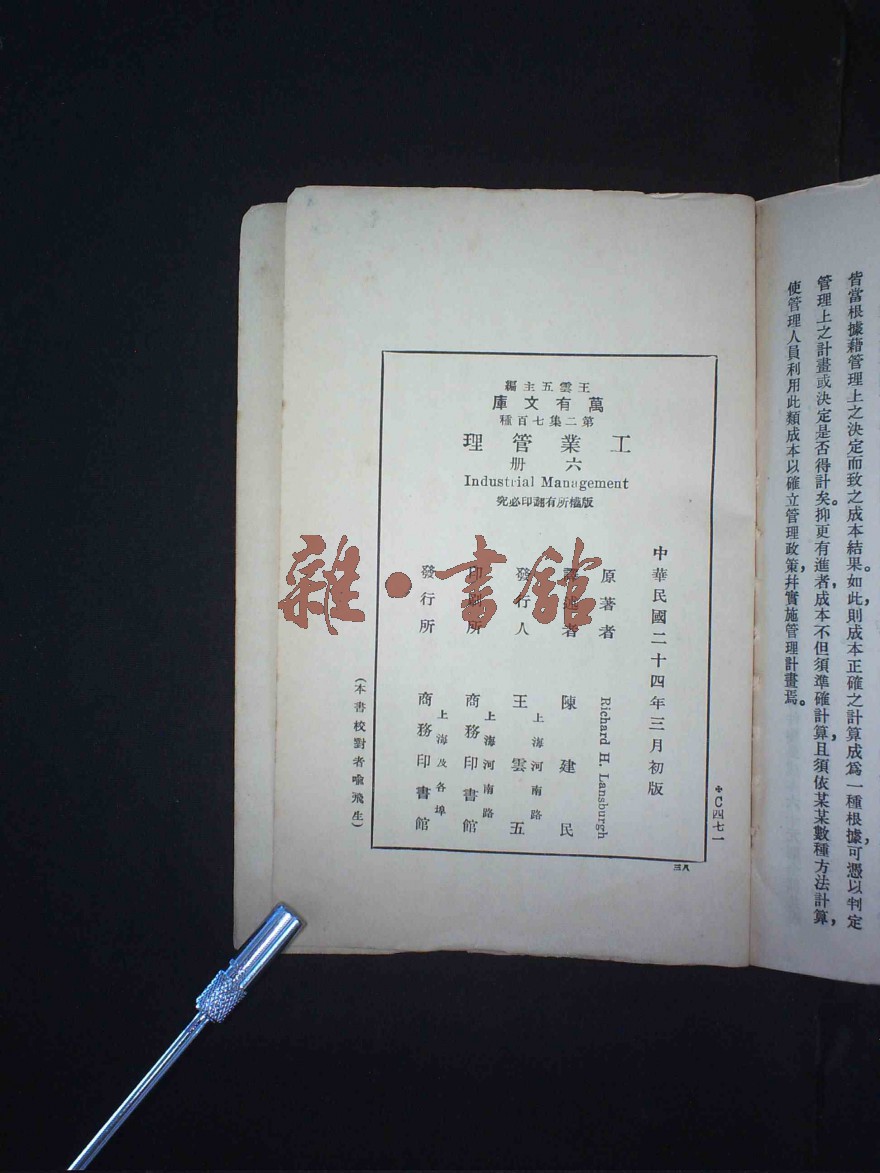 皆當根據藉管理上之決定而致之成本結果。如此,則成本正確之計算成爲一種根據,可憑以判定
管理上之計畫或決定是否得計矣。抑更有進者,成本不但須準確計算,且須依某某數種方法計算,
使管理人員利用此類成本以確立管理政策,幷實施管理計畫焉。
編主五雲王
庫文有萬
種百七集二第
理管業工
冊六
Industrial Management
究必印翻有所權版
中華民國二十四年三月初版
原著者 Richard H. Lansburgh
譯述者 陳建民
發行人 王雲五
上海河南路
印刷所 商務印書館
上海河南路
發行所 商務印書館
上海及各埠
(本書校對者喻飛生)
✤C四七一
雜·書館